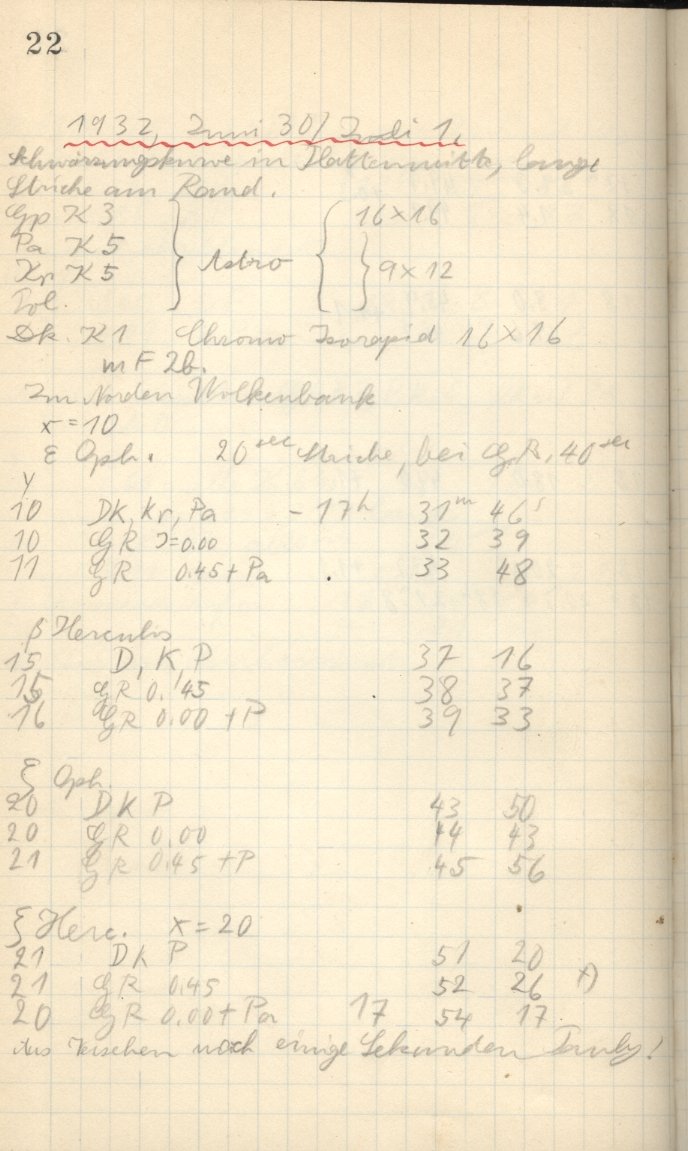 22
1932, Juni 30/Juli 1.
Schwärzungskurve in Plattenmitte, lange
Striche am Rand.
Gp K 3 } Astro { 16×16
Pa K 5 } 9×12
Kr K 5
Tol.
Dk. K1 Chromo Isorapid 16×16
m F 2b.
Im Norden Wolkenbank
x=10
ε Oph. 20 sec Striche, bei GR, 40 sec
y
10 DK, Kr, Pa - 17h 31m 46s
10 GR =0.00 32 39
11 GR 0.45+Pa . 33 48
β Herculis
15 D, K, P 37 16
15 GR 0.45 38 37
16 GR 0.00 +P 39 33
ξ Oph.
20 DK P 43 50
20 GR 0.00 44 43
21 GR 0.45 +P 45 56
ξ Herc. x=20
21 DK P 51 20
21 GR 0.45 52 26 *)
20 GR 0.00+Pa 17 54 17
Aus Versehen noch einige Sekunden